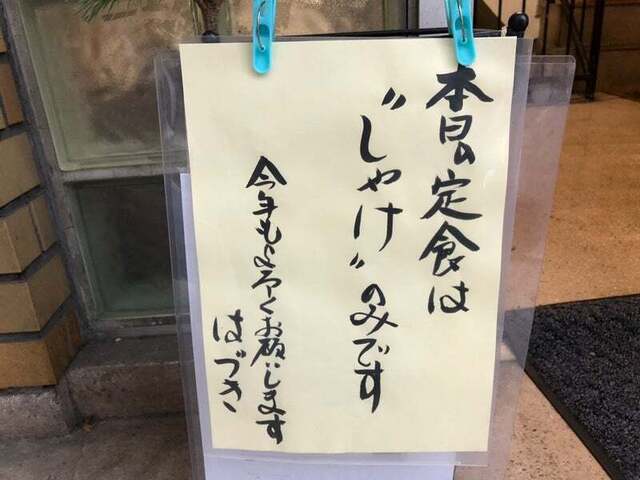 本日の定食は
〝しゃけ〟のみです
今年もよろしくお願いします
はづき